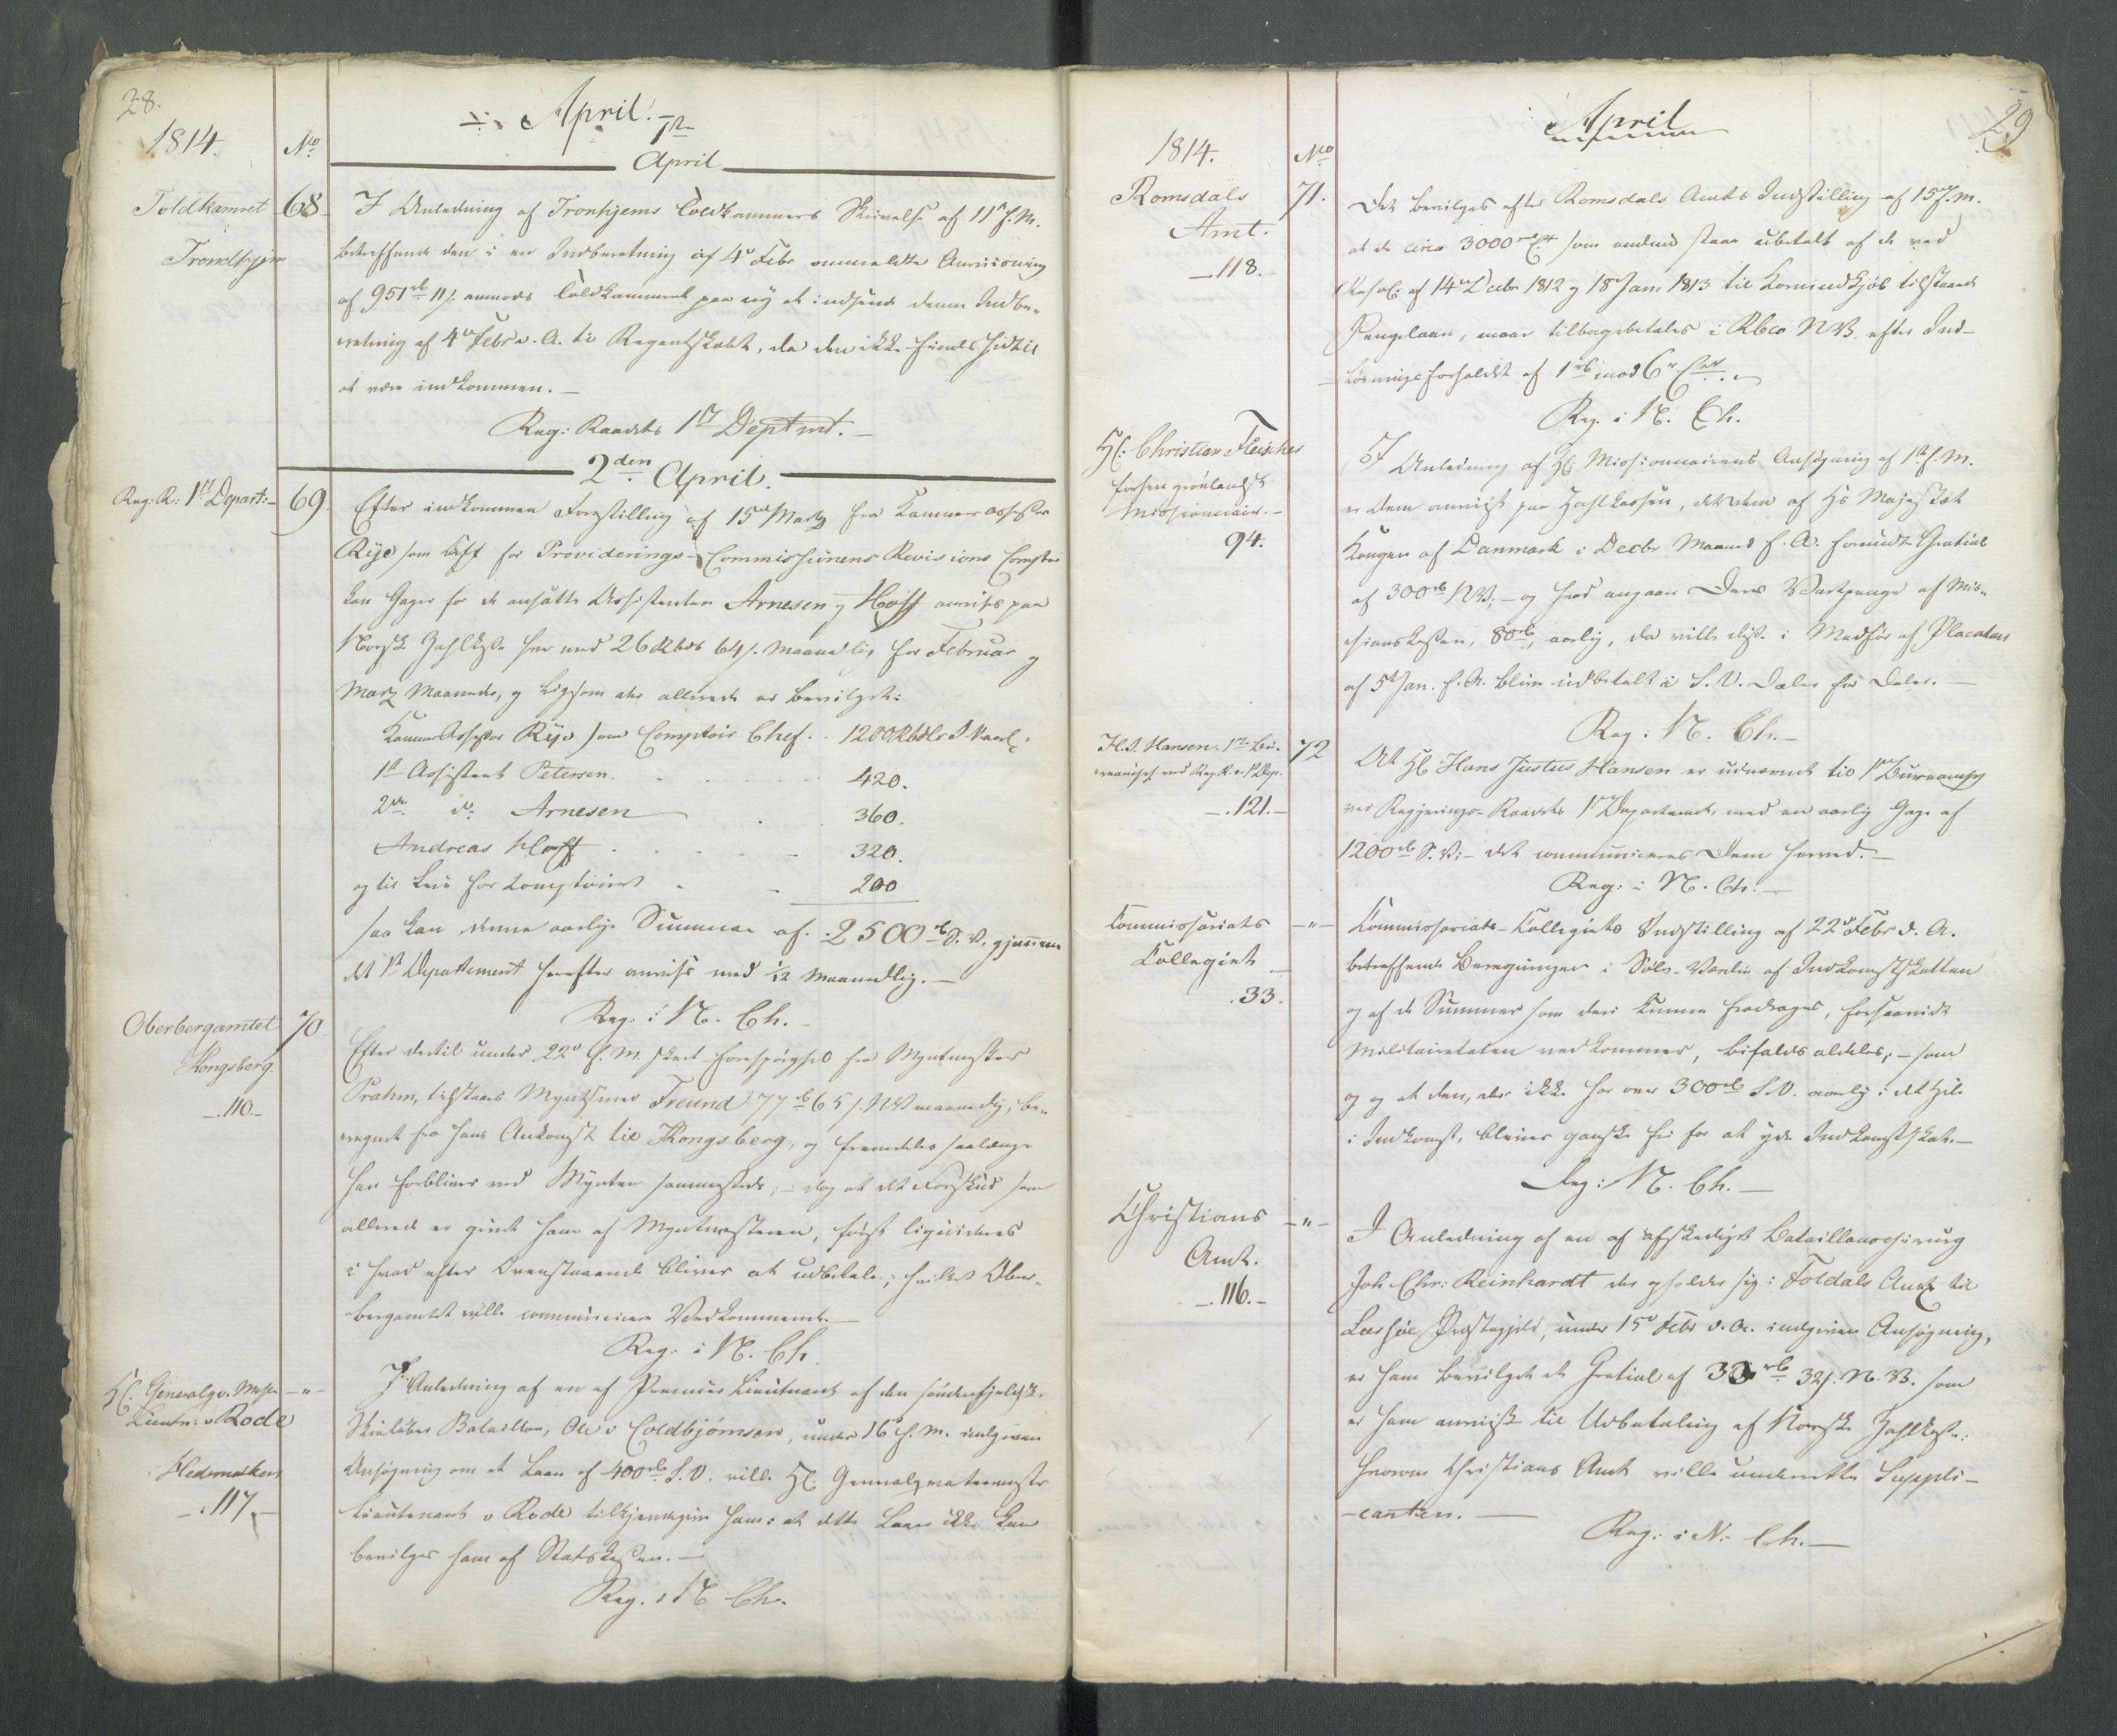 28.
April.
1814.
No
1ste
April
Toldkamret
Trondhjem
68
I Anledning af Tronhjems Toldkammers Skrivelse af 11te f. M.
betreffende den i en Indberetning af 4de Febr ommeldte Anviisning
af 951 rb 11 s. anmodes Toldkammeret paa ny at indsende denne Indbe-
retning af 4de Febr d. A. til Regentskabet, da den ikke findes hidtil
at være indkommen.—
Reg: Raadets 1ste Deptmt.—
2den April.
Reg: R: 1ste Depart:
69.
Efter indkommen Forestilling af 15de Marts fra Kammerassessor
Rye som Chef for Providerings-Commissionens Revisions Comptoir
kan Gager for de ansatte Assistenter Arnesen og Hoff anvises paa
Norsk Zahlkasse her med 26 Rbdr 64 s. maanedlig for Februar og
Marz Maaneder, og ligesom der allerede er bevilget:
KammerAssessor Rye som Comptoir Chef. . 1200 Rbdlr S Værd.
1ste Assistent Petersen. 420.
2den do Arnesen 360.
Andreas Hoff 320.
og til Leie for Comptoiret 200
saa kan denne aarlige Summa af 2500 rb S. V. gjennem
det 1ste Departement herefter anvises med 1/12 maanedlig.—
Reg: i N. Ch.
Oberbergamtet
Kongsberg.
—.110.—
70
Efter dertil under 22de f. M. skeet Forespørgsel fra Myntmester
Prahm, tilstaaes Myntskriver Freund 77 rb 65 s. NV maanedlig, be-
regnet fra hans Ankomst til Kongsberg, og fremdeles saalænge
han forbliver ved Mynten sammesteds;— dog at det Forskud som
allerede er givet ham af Myntmesteren, først liquideres
i hvad efter Ovenstaaende bliver at udbetale; hvilket Ober-
bergamtet ville communicere Vedkommende.—
Reg: i N. Ch.
Hr. Generalqv. Mester
Lieutn: v Rode
Hedemarken
—.117.—
—"—
I Anledning af en af Premier Lieutnant af den søndenfjeldske
Skieløber Bataillon, Ole v Coldbjørnsen, under 16 f. M. indgiven
Ansøgning om et Laan af 400 rb S. V. ville Hr. Generalqvarteermester
Lieutenant v Rode tilkjendegive ham: at dette Laan ikke kan
bevilges ham af Statskassen.—
Reg. i N Ch.
April
29
1814.
No
Romsdals
Amt.
—118.
71.
Det bevilges efter Romsdals Amts Indstilling af 15 f. M.
at de circa 3000 som endnu staae ubetalt af de ved
Resol: af 14de Decbr 1812 og 18 Jan: 1813 til Kornindkjøb tilstaaede
Pengelaan, maae tilbagebetales i Rbco N V. efter Ind-
løsningsforholdet af 1 rb mod 6 r
Reg. i N. Ch.
Hr: Christian Fleischer
forhen grønlandsk
Missionair.—
94.
I Anledning af Hr. Missionairens Ansøgning af 1ste f. M.
er Dem anviist paa Zahlkassen, det Dem af Hs Majestæt
Kongen af Danmark i Decbr Maaned f. A. forundte Gratial
af 300 rb NV;— og hvad angaaer Deres Vartpenge af Mis-
sionskassen, 80 rb, aarlig, da ville disse i Medfør af Placaten
af 5te Jan. f. A. blive udbetalt i S. V. Daler for Daler.—
Reg: N. Ch.—
H. J. Hansen. 1ste Bu-
reauchef ved Reg. R. 1ste Dep.
—.121.—
72
At Hr Hans Justus Hansen er udnævnt til 1ste Bureauchef
ved Regjerings-Raadets 1ste Departement, med en aarlig Gage af
1200 rb S. V;— det communiceres Dem herved.—
Reg: i N. Ch.—
Commissariats
Collegiet
.33.
—"—
Kommissariats-Collegiets Indstilling af 22de Febr d. A.
betreffende Beregninger i Sølv-Værdie af Indkomstskatten
og af de Summer som deri kunne fradrages, forsaavidt
Militairetaten vedkommer, bifaldes aldeles;— som
og og at den, der ikke har over 300 rb S. V. aarlig i det Hele
i Indkomst, bliver ganske fri for at yde Indkomstskat.—
Reg: N. Ch.—
Christians
Amt.
—.116.—
—"—
I Anledning af en af afskediget Bataillonschirurg
Joh. Chr: Reinhardt der opholder sig i Foldals Annex til
Lessøe Præstegjeld, under 15de Febr d. A. indgiven Ansøgning,
er ham bevilget et Gratial af 33 rb 32 s. N. V. som
er ham anviist til Udbetaling af Norske Zahlkasse:
hvorom Christians Amt ville underrette Suppli-
-canten.—
Reg: i N. Ch.—